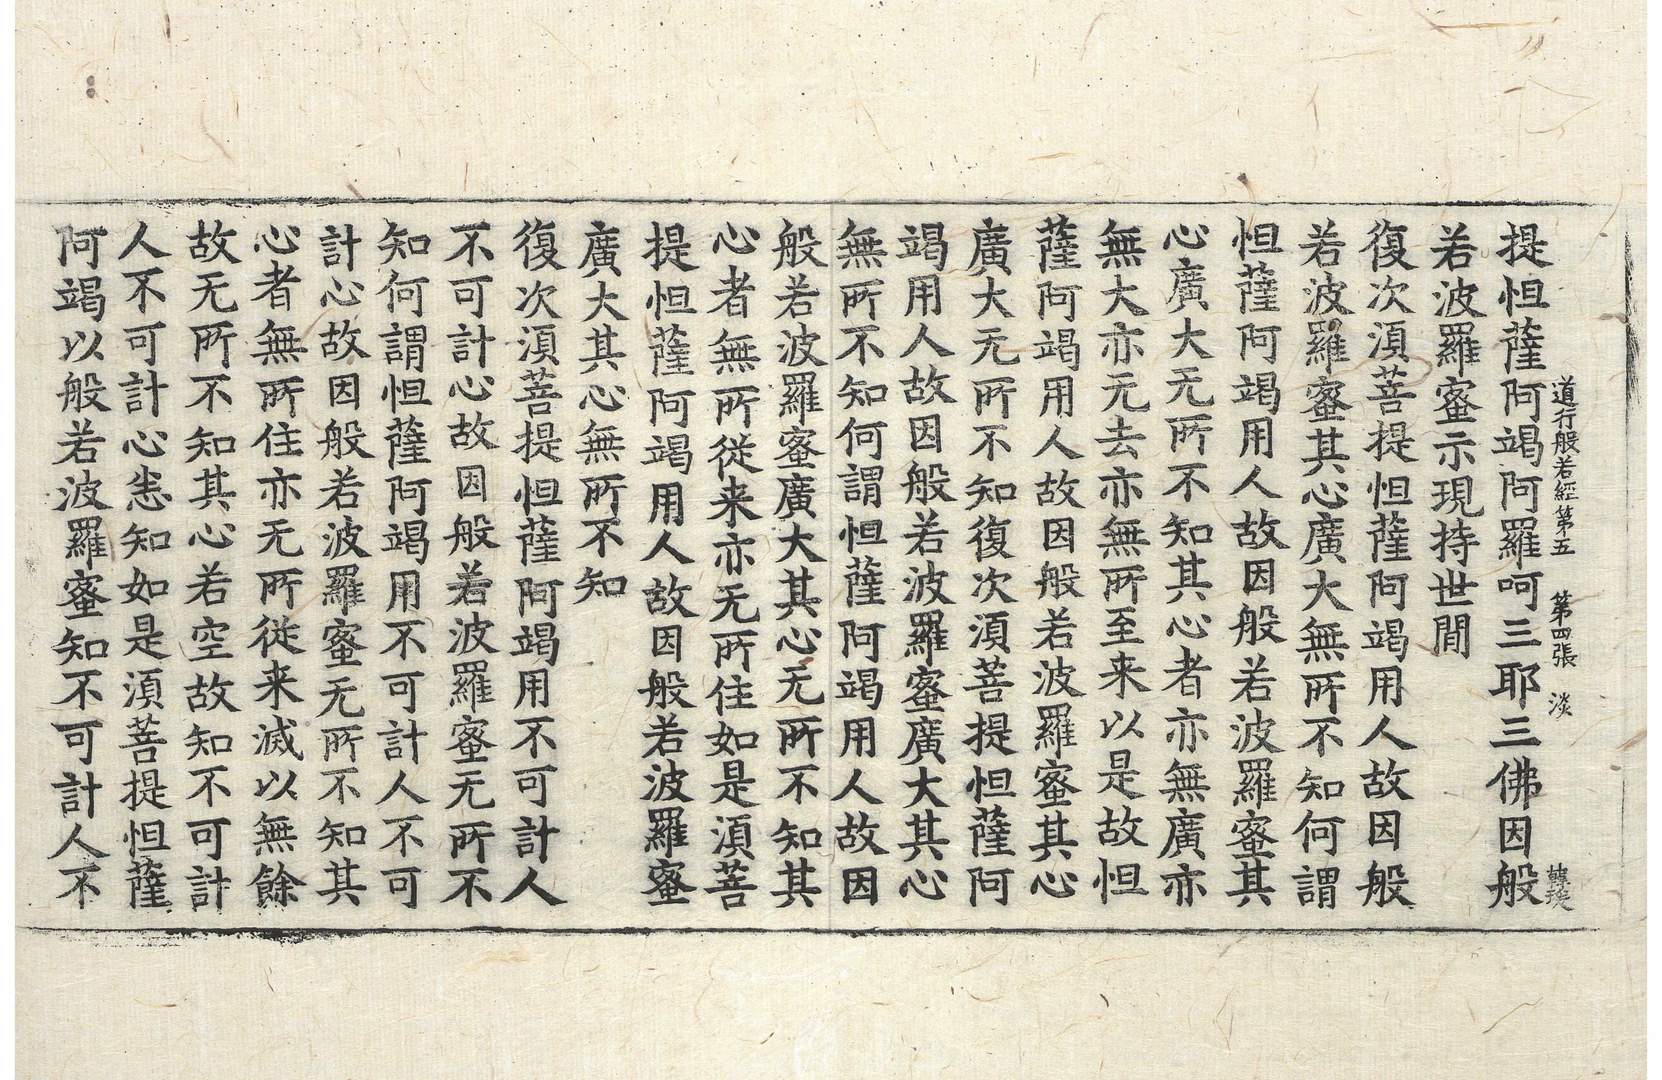 道行般若經第五 第四張 淡
提怛薩阿竭阿羅呵三耶三佛因般
若波羅蜜示現持世閒
復次湏菩提怛薩阿竭用人故因般
若波羅蜜其心廣大無所不知何謂
怛薩阿竭用人故因般若波羅蜜其
心廣大无所不知其心者亦無廣亦
無大亦无去亦無所至来以是故怛
薩阿竭用人故因般若波羅蜜其心
廣大无所不知復次湏菩提怛薩阿
竭用人故因般若波羅蜜廣大其心
無所不知何謂怛薩阿竭用人故因
般若波羅蜜廣大其心无所不知其
心者無所從来亦无所住如是湏菩
提怛薩阿竭用人故因般若波羅蜜
廣大其心無所不知
復次湏菩提怛薩阿竭用不可計人
不可計心故因般若波羅蜜无所不
知何謂怛薩阿竭用不可計人不可
計心故因般若波羅蜜无所不知其
心者無所住亦无所從来滅以無餘
故无所不知其心若空故知不可計
人不可計心悉知如是湏菩提怛薩
阿竭以般若波羅蜜知不可計人不